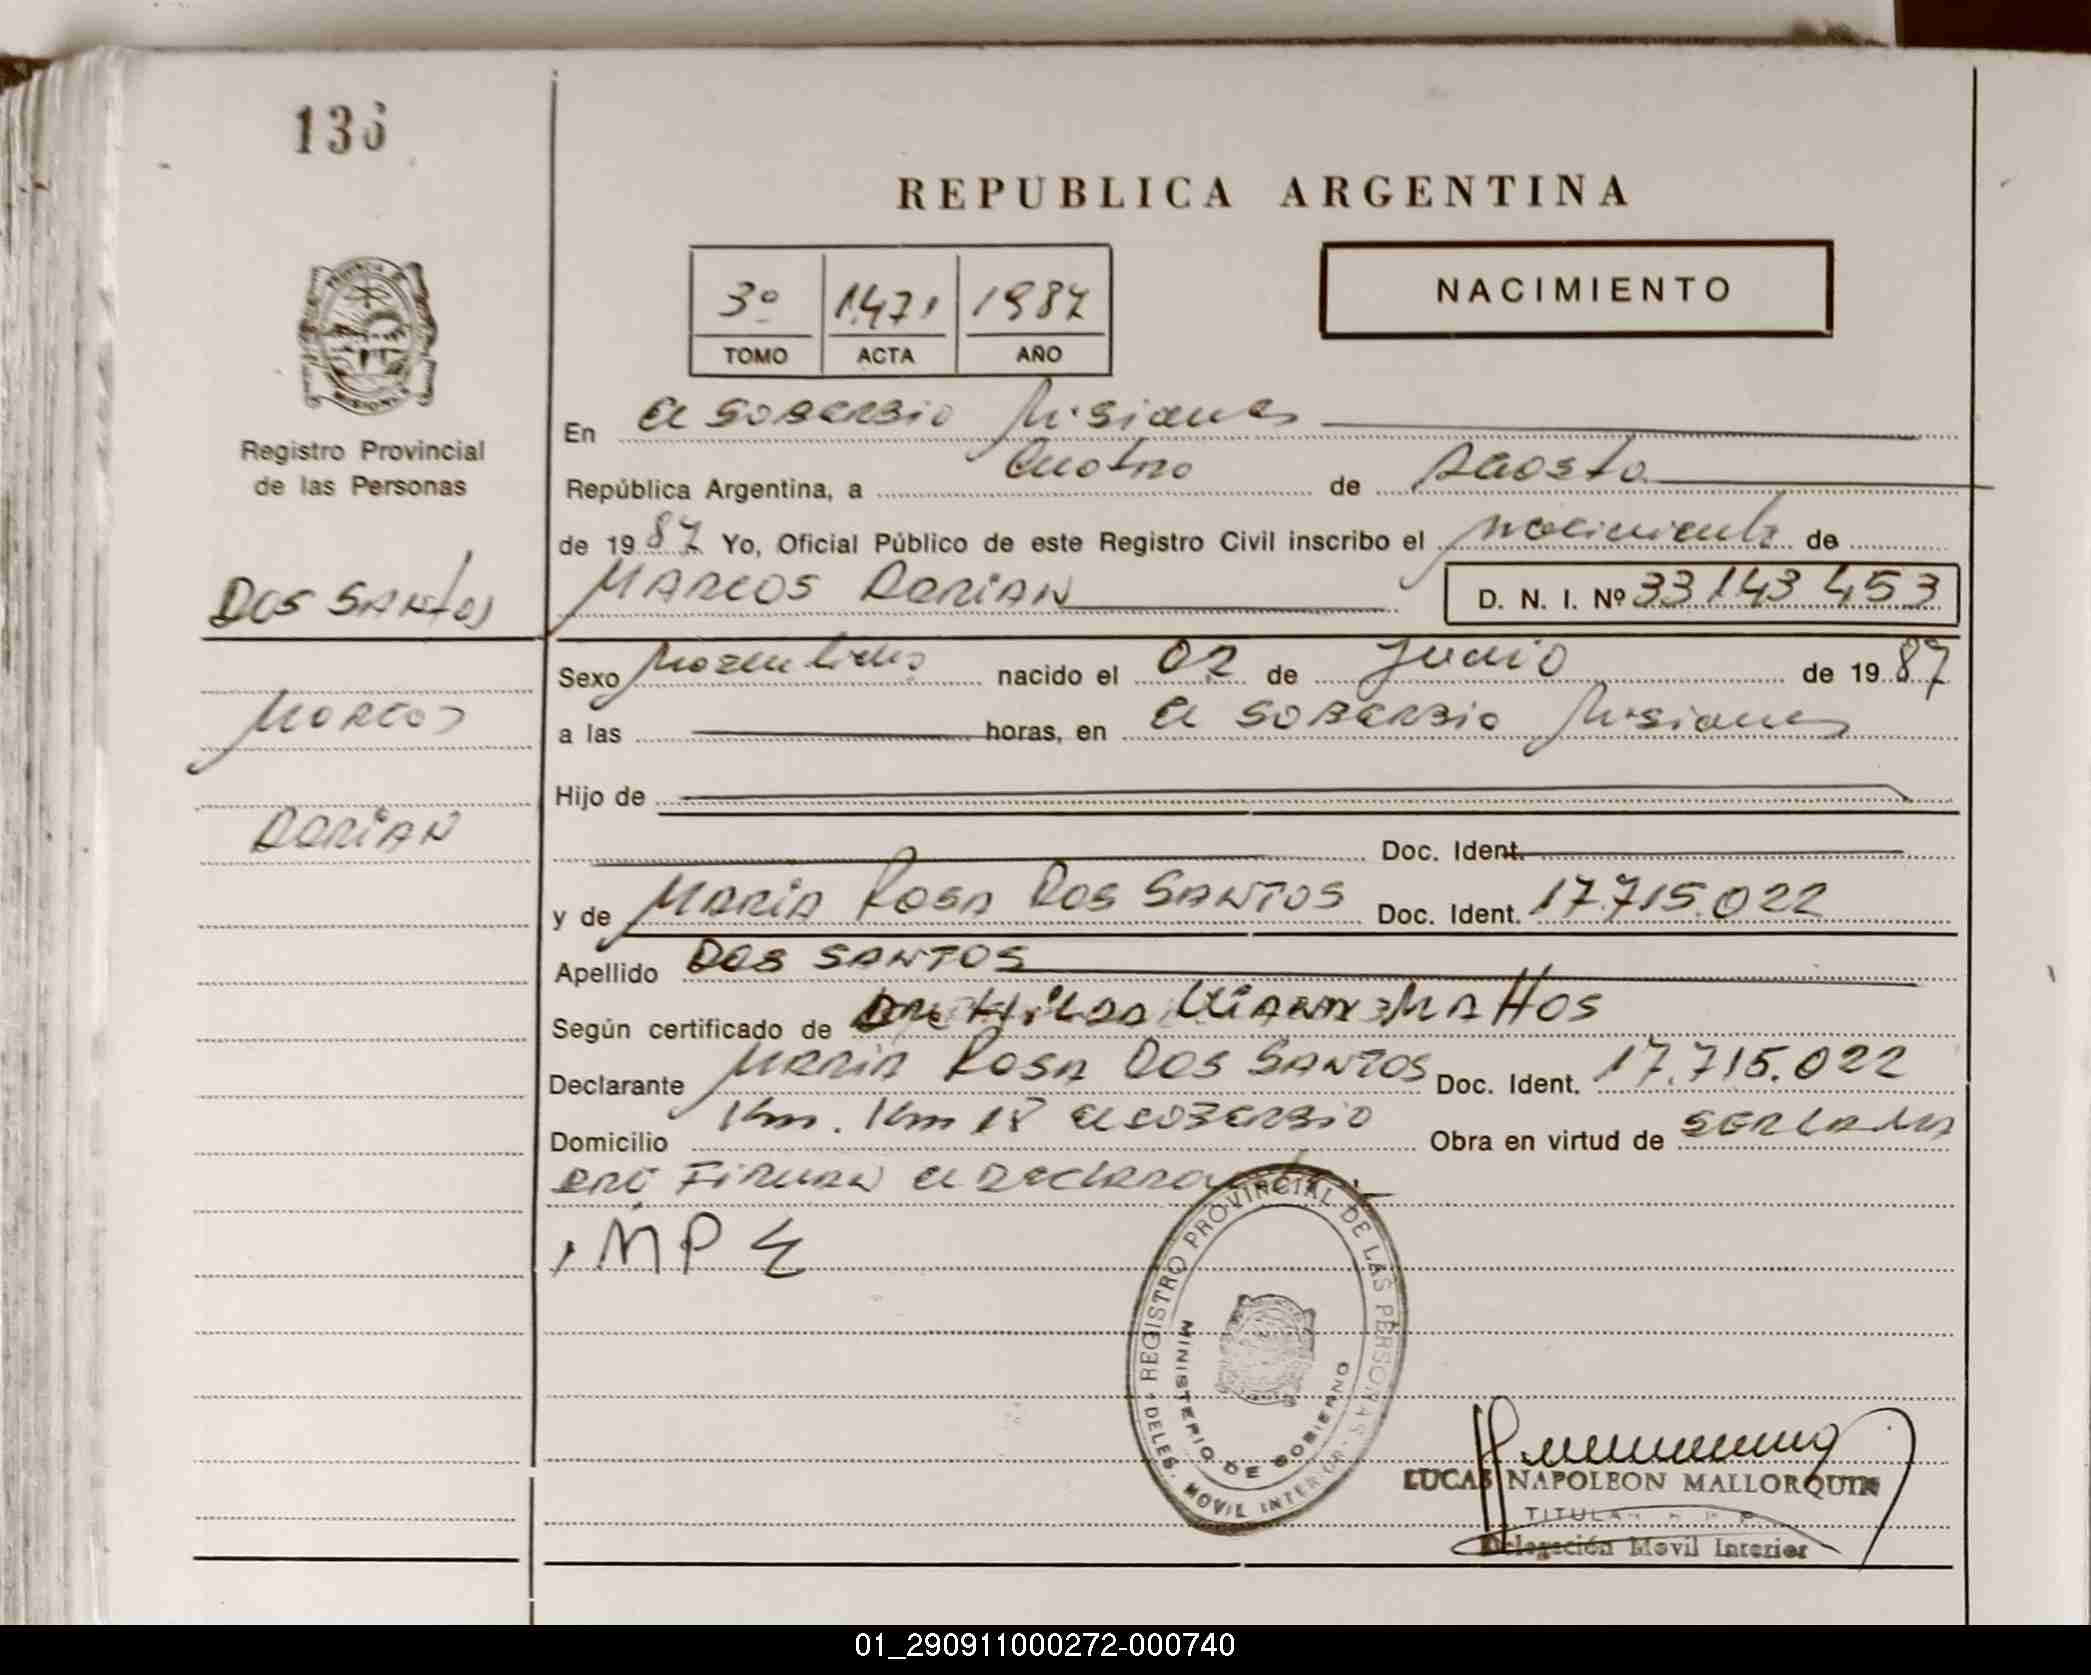 136
REPUBLICA ARGENTINA
3º 1471 1987
TOMO ACTA AÑO
NACIMIENTO
Registro Provincial
de las Personas
DOS SANTOS
MARCOS
DORIAN
En El SOBERBIO Misiones
República Argentina, a Cuatro de Agosto
de 1987 Yo, Oficial Público de este Registro Civil inscribo el nacimiento de
MARCOS DORIAN D. N. I. Nº 33 143 453
Sexo Masculino nacido el 02 de Junio de 1987
a las horas, en El SOBERBIO Misiones
Hijo de
Doc. Ident.
y de MARIA ROSA DOS SANTOS Doc. Ident. 17.715.022
Apellido DOS SANTOS
Según certificado de MATTOS
Declarante MARIA ROSA DOS SANTOS Doc. Ident. 17.715.022
Domicilio Km. Km 18 El SOBERBIO Obra en virtud de SER LA MA
DRE FIRMAN El DEClarante
REGISTRO PROVINCIAL DE LAS PERSONAS
MINISTERIO DE GOBIERNO
DELEG. MOVIL INTERIOR
LUCAS NAPOLEON MALLORQUIN
TITULAR
Delegación Movil Interior
01_290911000272-000740